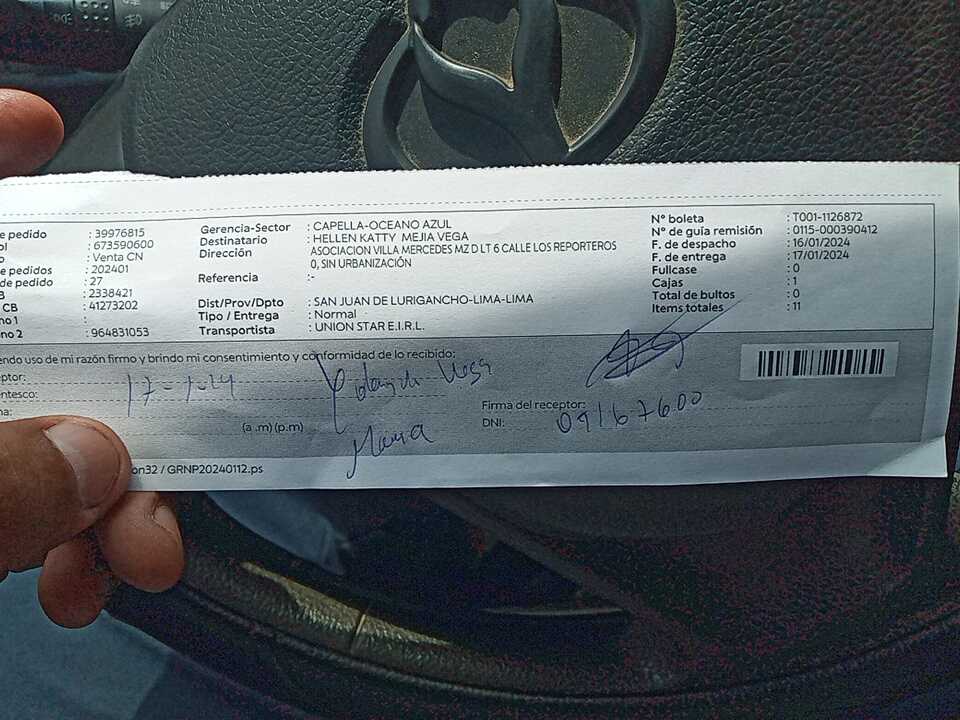 e pedido : 39976815
ol : 673590600
o : Venta CN
e pedidos : 202401
de pedido : 27
B : 2338421
CB : 41273202
no 1 :
no 2 : 964831053
Gerencia-Sector : CAPELLA-OCEANO AZUL
Destinatario : HELLEN KATTY MEJIA VEGA
Dirección : ASOCIACION VILLA MERCEDES MZ D LT 6 CALLE LOS REPORTEROS
0, SIN URBANIZACIÓN
Referencia :-
Dist/Prov/Dpto : SAN JUAN DE LURIGANCHO-LIMA-LIMA
Tipo / Entrega : Normal
Transportista : UNION STAR E.I.R.L.
N° boleta : T001-1126872
N° de guía remisión : 0115-000390412
F. de despacho : 16/01/2024
F. de entrega : 17/01/2024
Fullcase : 0
Cajas : 1
Total de bultos : 0
Items totales : 11
endo uso de mi razón firmo y brindo mi consentimiento y conformidad de lo recibido:
eptor:
entesco:
na:
17-1-24
Vega
(a .m) (p.m)
Mama
Firma del receptor:
DNI: 09167600
on32 / GRNP20240112.ps